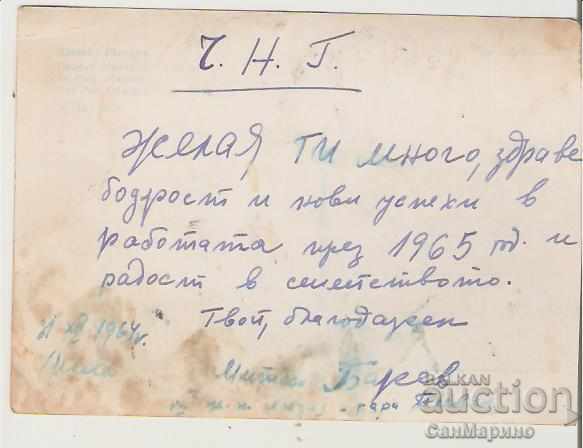 Ч. Н. Г.
Желая ти много, здраве
бодрост и нови успехи в
работата през 1965 год. и
радост в семейството.
Твой, благодарен
21 XII 1964 г.
BALKAN
auction
СанМарино